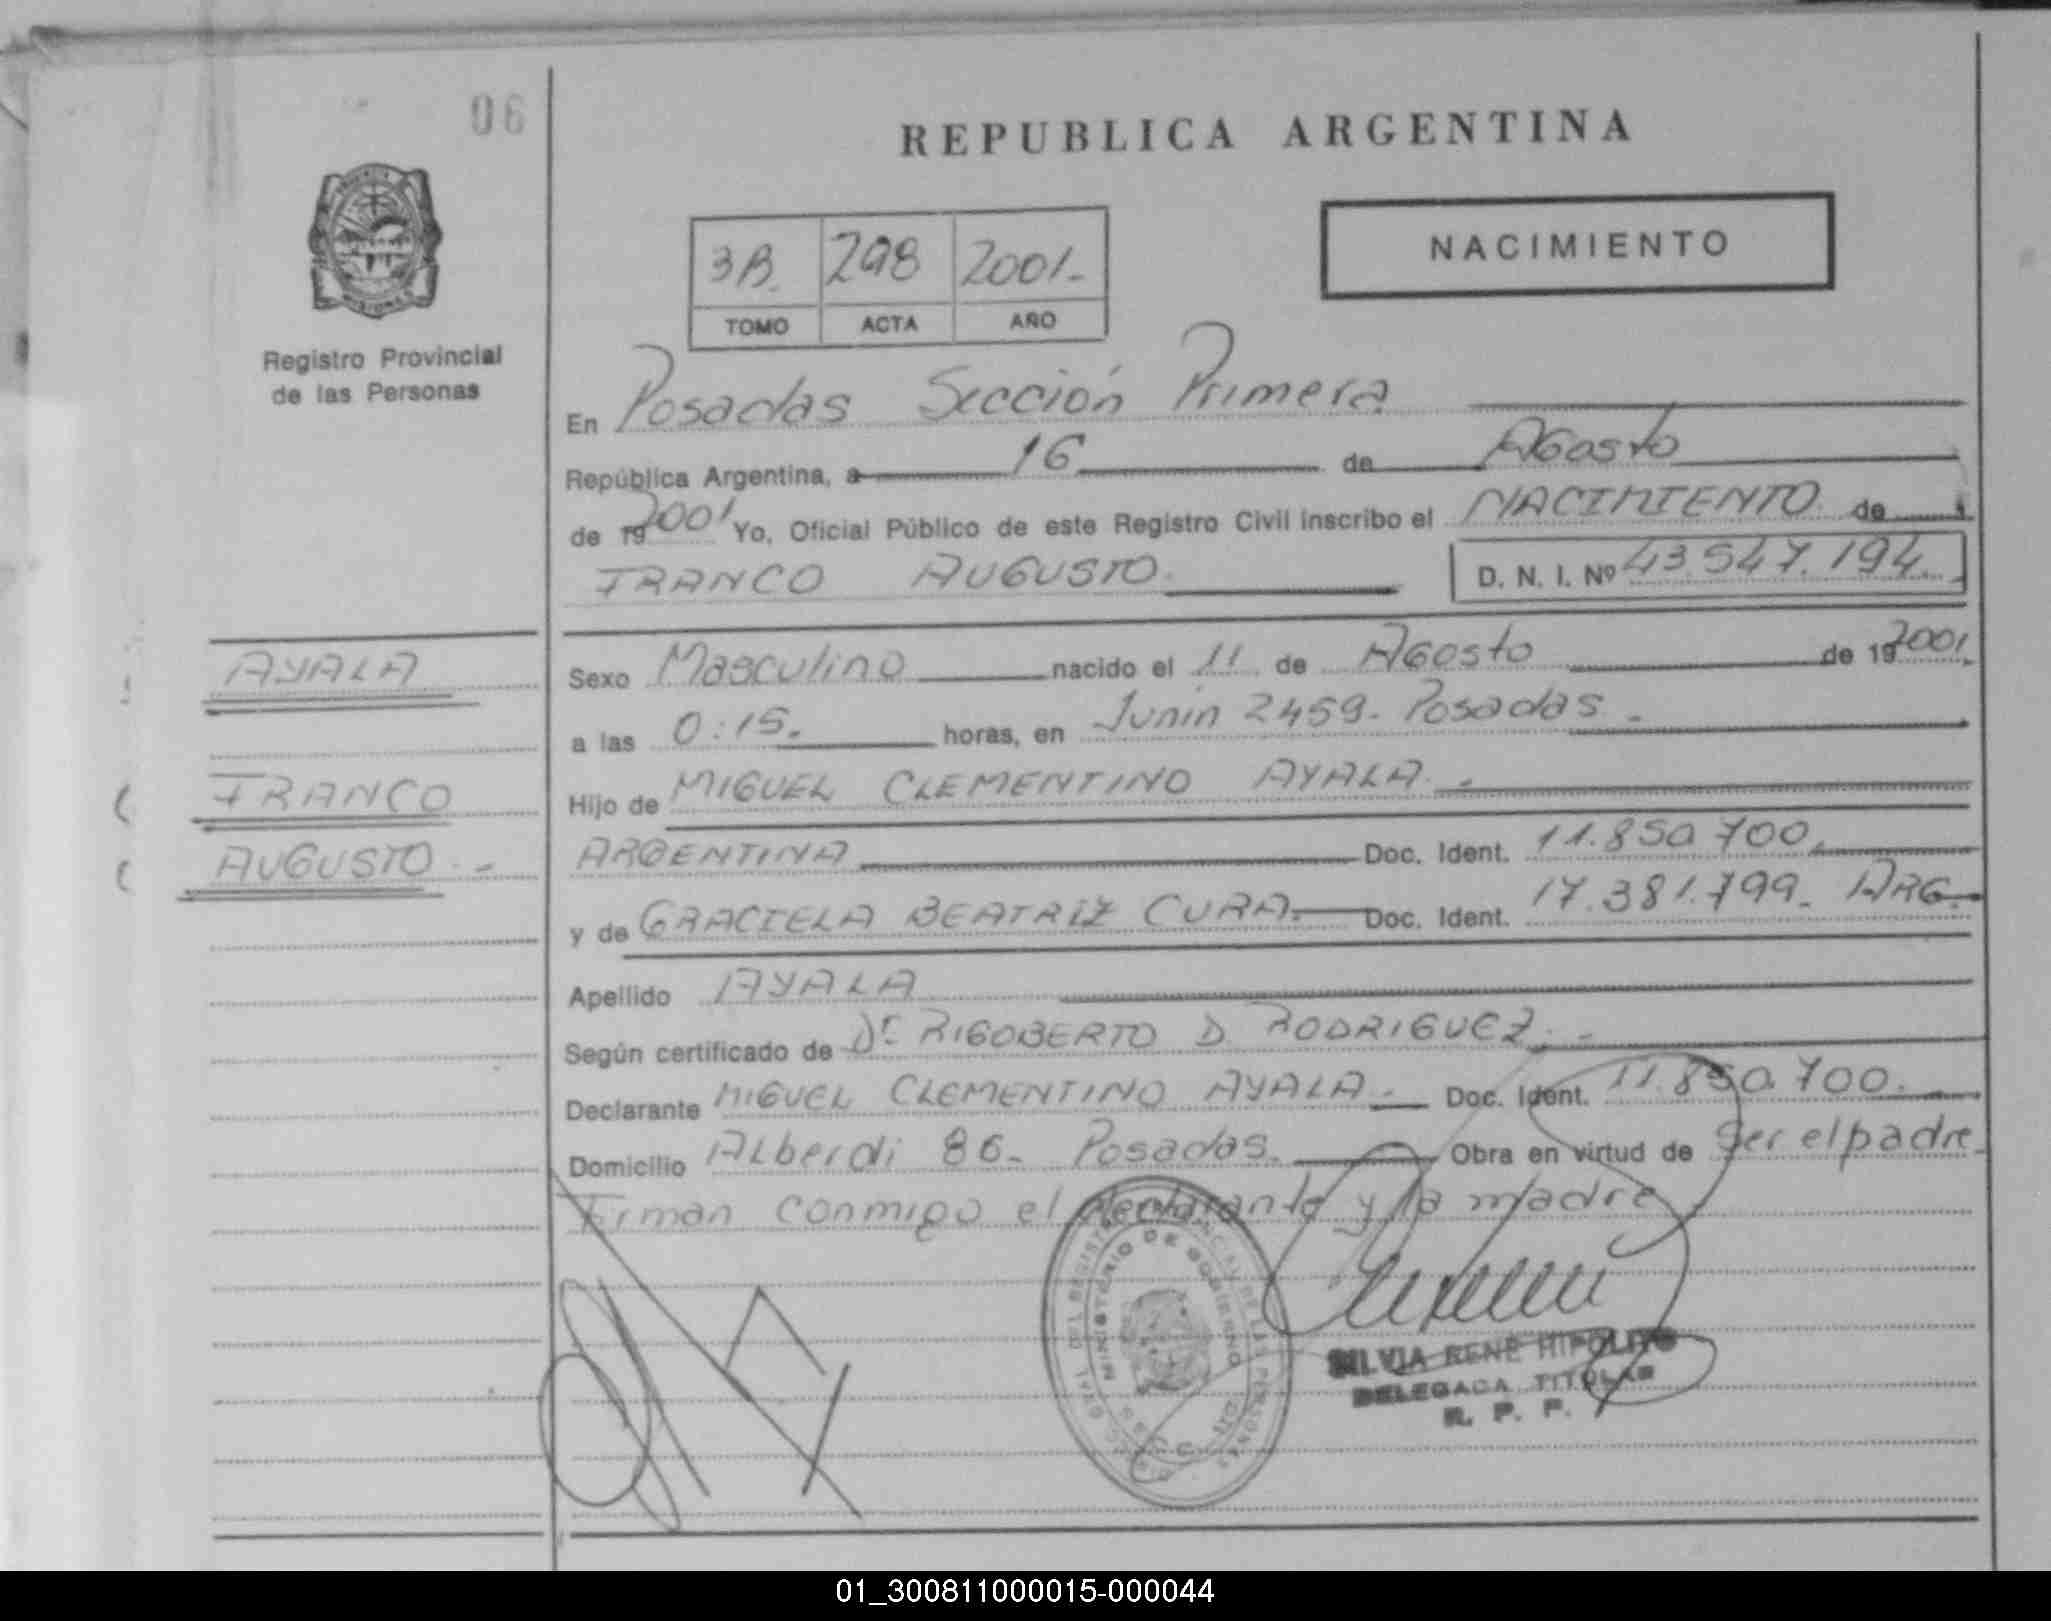 06
REPUBLICA ARGENTINA
NACIMIENTO
3B. 298 2001.-
TOMO ACTA AÑO
MISIONES
Registro Provincial
de las Personas
En Posadas Sección Primera
República Argentina, a 16 de Agosto
de 19 2001 Yo, Oficial Público de este Registro Civil inscribo el NACIMIENTO de
FRANCO AUGUSTO. D. N. I. Nº 43.547.194.
AYALA
FRANCO
AUGUSTO.-
Sexo Masculino nacido el 11 de Agosto de 19 2001.
a las 0:15. horas, en Junin 2459. Posadas.-
Hijo de MIGUEL CLEMENTINO AYALA.-
ARGENTINA Doc. Ident. 11.850.700.
y de GRACIELA BEATRIZ CURA. Doc. Ident. 17.381.799. ARG.
Apellido AYALA
Según certificado de Dr. RIGOBERTO D. RODRIGUEZ.-
Declarante MIGUEL CLEMENTINO AYALA.- Doc. Ident. 11.850.700.
Domicilio Alberdi 86.- Posadas. Obra en virtud de ser el padre
Firman conmigo el declarante y la madre
MINISTERIO DE GOBIERNO
SILVIA RENE HIPOLITO
DELEGADA TITULAR
R. P. P.
01_300811000015-000044